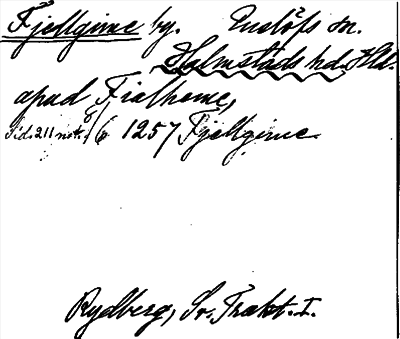 Fjellgirne by. Enslöfs sn.
Halmstads hd. Hld.
apud Fialherne,
Sid. 211 not. 8) 6 1257 Fjellgirne.
Rydberg, Sv. Trakt. I.